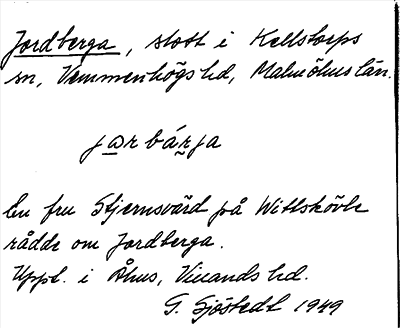 Jordberga, slott i Källstorps
sn, Vemmenhögs hd, Malmöhus län.
jɷrbárja
En fru Stjernsvärd på Wittskövle
rådde om Jordberga.
Uppt. i Åhus, Villands hd.
G. Sjöstedt 1949